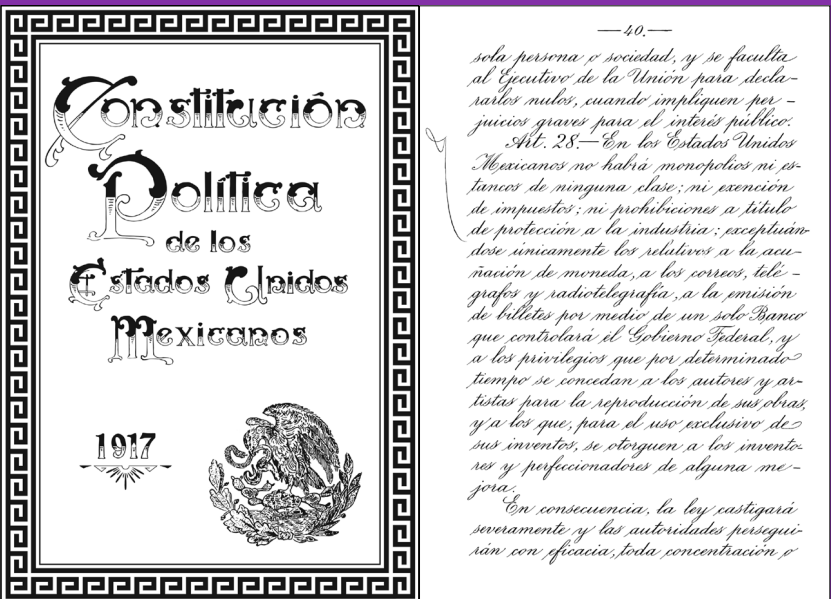 Constitución
Política
de los
Estados Unidos
Mexicanos
1917
—40.—
sola persona o sociedad, y se faculta
al Ejecutivo de la Unión para decla-
rarlos nulos, cuando impliquen per-
juicios graves para el interés público.
Art. 28.—En los Estados Unidos
Mexicanos no habrá monopolios ni es-
tancos de ninguna clase; ni exención
de impuestos; ni prohibiciones a título
de protección a la industria; exceptuán-
dose únicamente los relativos a la acu-
ñación de moneda, a los correos, telé-
grafos y radiotelegrafía, a la emisión
de billetes por medio de un solo Banco
que controlará el Gobierno Federal, y
a los privilegios que por determinado
tiempo se concedan a los autores y ar-
tistas para la reproducción de sus obras,
y a los que, para el uso exclusivo de
sus inventos, se otorguen a los invento-
res y perfeccionadores de alguna me-
jora.
En consecuencia, la ley castigará
severamente y las autoridades persegui-
rán con eficacia, toda concentración o